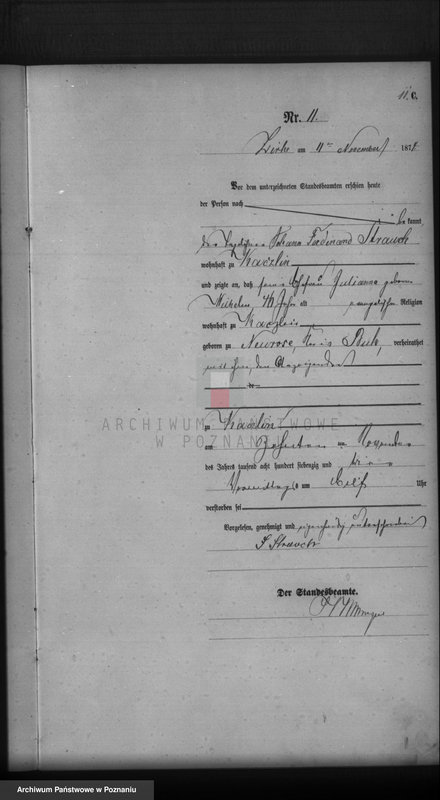 11. C.
Nr. 11.
Zirke am 11ten November 1874
Vor dem unterzeichneten Standesbeamten erschien heute
der Person nach
be kannt,
der Johann Ferdinand Strauch
wohnhaft zu Kaczlin
und zeigte an, daß seine Ehefrau Julianna geborne
46 Jahr alt evangelischer Religion
wohnhaft zu Kaczlin
geboren zu Neurose, Kreis Buk, verheirathet
mit ihm, dem Anzeigenden
de
zu Kaczlin
ARCHIWUM PAŃSTWOWE
W POZNANIU
am Zehnten November
des Jahres tausend acht hundert siebenzig und vier
Vormittags um Uhr
verstorben sei
Vorgelesen, genehmigt und eigenhändig unterschrieben
Strauch
Der Standesbeamte.
Archiwum Państwowe w Poznaniu